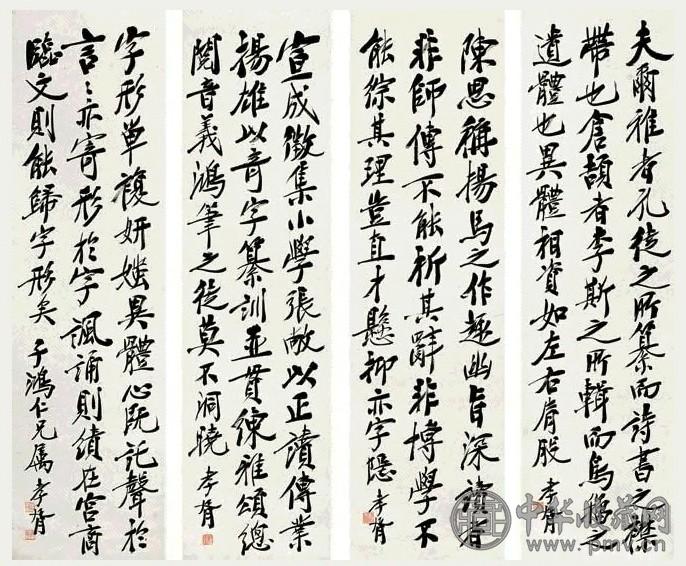 夫爾雅者孔徒之所纂而詩書之襟
帶也倉頡者李斯之所輯而鳥籀之
遺體也異體相資如左右肩股 孝胥
陳思稱揚馬之作趣幽旨深讀者
非師傳不能析其辭非博學不
能綜其理豈直才懸抑亦字隱 孝胥
宣成徵集小學張敞以正讀傳業
揚雄以奇字纂訓並貫練雅頌總
閱音義鴻筆之徒莫不洞曉 孝胥
字形單複妍媸異體心既託聲於
言〻亦寄形於字諷誦則績在宮商
臨文則能歸字形矣 子鴻仁兄屬 孝胥
中华收藏网
www.pmv.cn